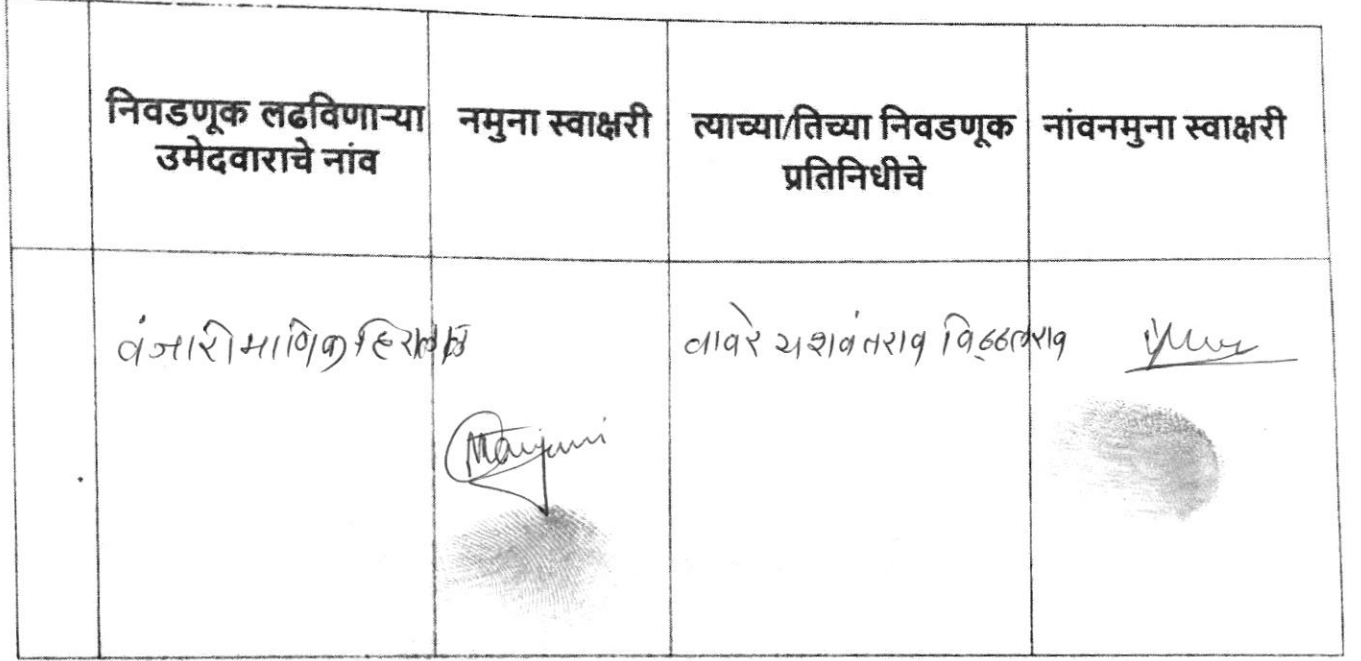 निवडणूक लढविणाऱ्या
उमेदवाराचे नांव
नमुना स्वाक्षरी
त्याच्या/तिच्या निवडणूक
प्रतिनिधीचे
नांवनमुना स्वाक्षरी
वंजारी माणिक
वावरे यशवंतराव विठ्ठलराव